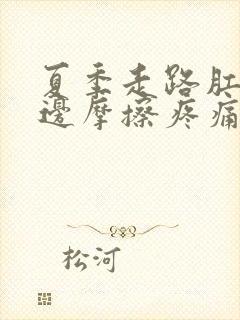 夏季走路肛
邊摩擦疼痛
松河